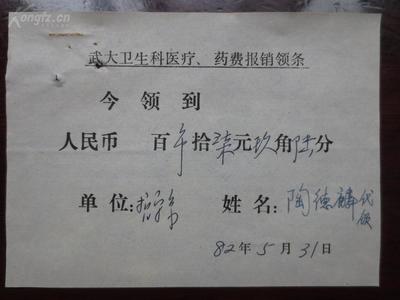 Kongfz.cn
武大卫生科医疗、药费报销领条
今领到
人民币 百 拾柒元玖角陆分
单位:哲学系 姓名:陶德麟代领
82年5月31日